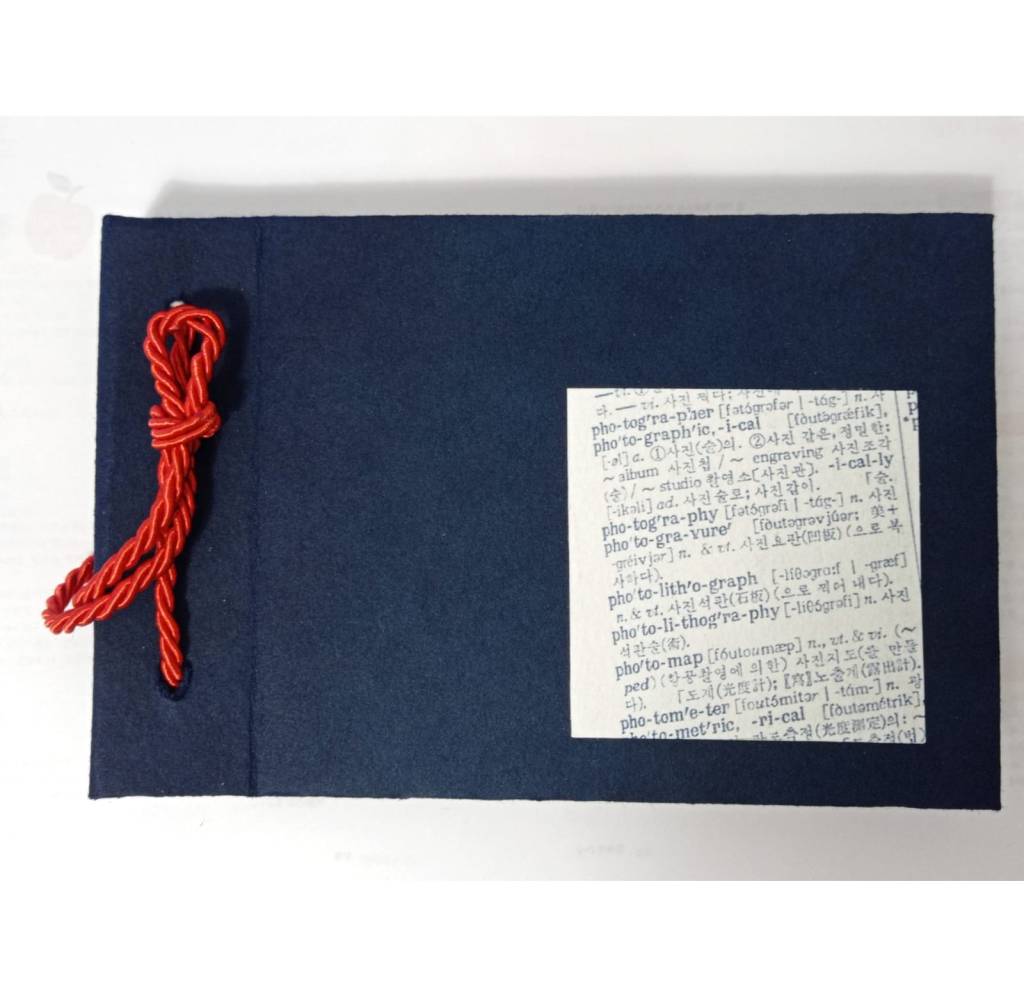 다. — vt. 사진 찍다; 사진에
pho-tog′ra-pher [fətɔ́grəfər | -tág-] n. 사
pho′to-graph′ic, -i-cal [fòutəgrǽfik],
[-əl] a. ①사진(술)의. ②사진 같은, 정밀한:
~ album 사진첩 / ~ engraving 사진조각
(술) / ~ studio 촬영소[사진관]. -i-cal-ly
[-ikəli] ad. 사진술로; 사진같이. 「술.
pho-tog′ra-phy [fətɔ́grəfi | -tág-] n. 사진
pho′to-gra-vure′ [fòutəgrəvjúər; 美+
-gréivjər] n. & vt. 사진요판(凹版) (으로 복
사하다).
pho′to-lith′o-graph [-líθəgrɑ:f | -græf]
n. & vt. 사진석판(石版) (으로 찍어 내다).
pho′to-li-thog′ra-phy [-liθɔ́grəfi] n. 사진
석판술(術).
pho′to-map [fóutoumæp] n., vt. & vi. (~
ped) (항공촬영에 의한) 사진지도(를 만들
다). 「도계(光度計); 〖寫〗노출계(露出計).
pho-tom′e-ter [foutɔ́mitər | -tám-] n. 광
pho′to-met′ric, -ri-cal [fòutəmétrik],
광도측정(光度測定)의: ~